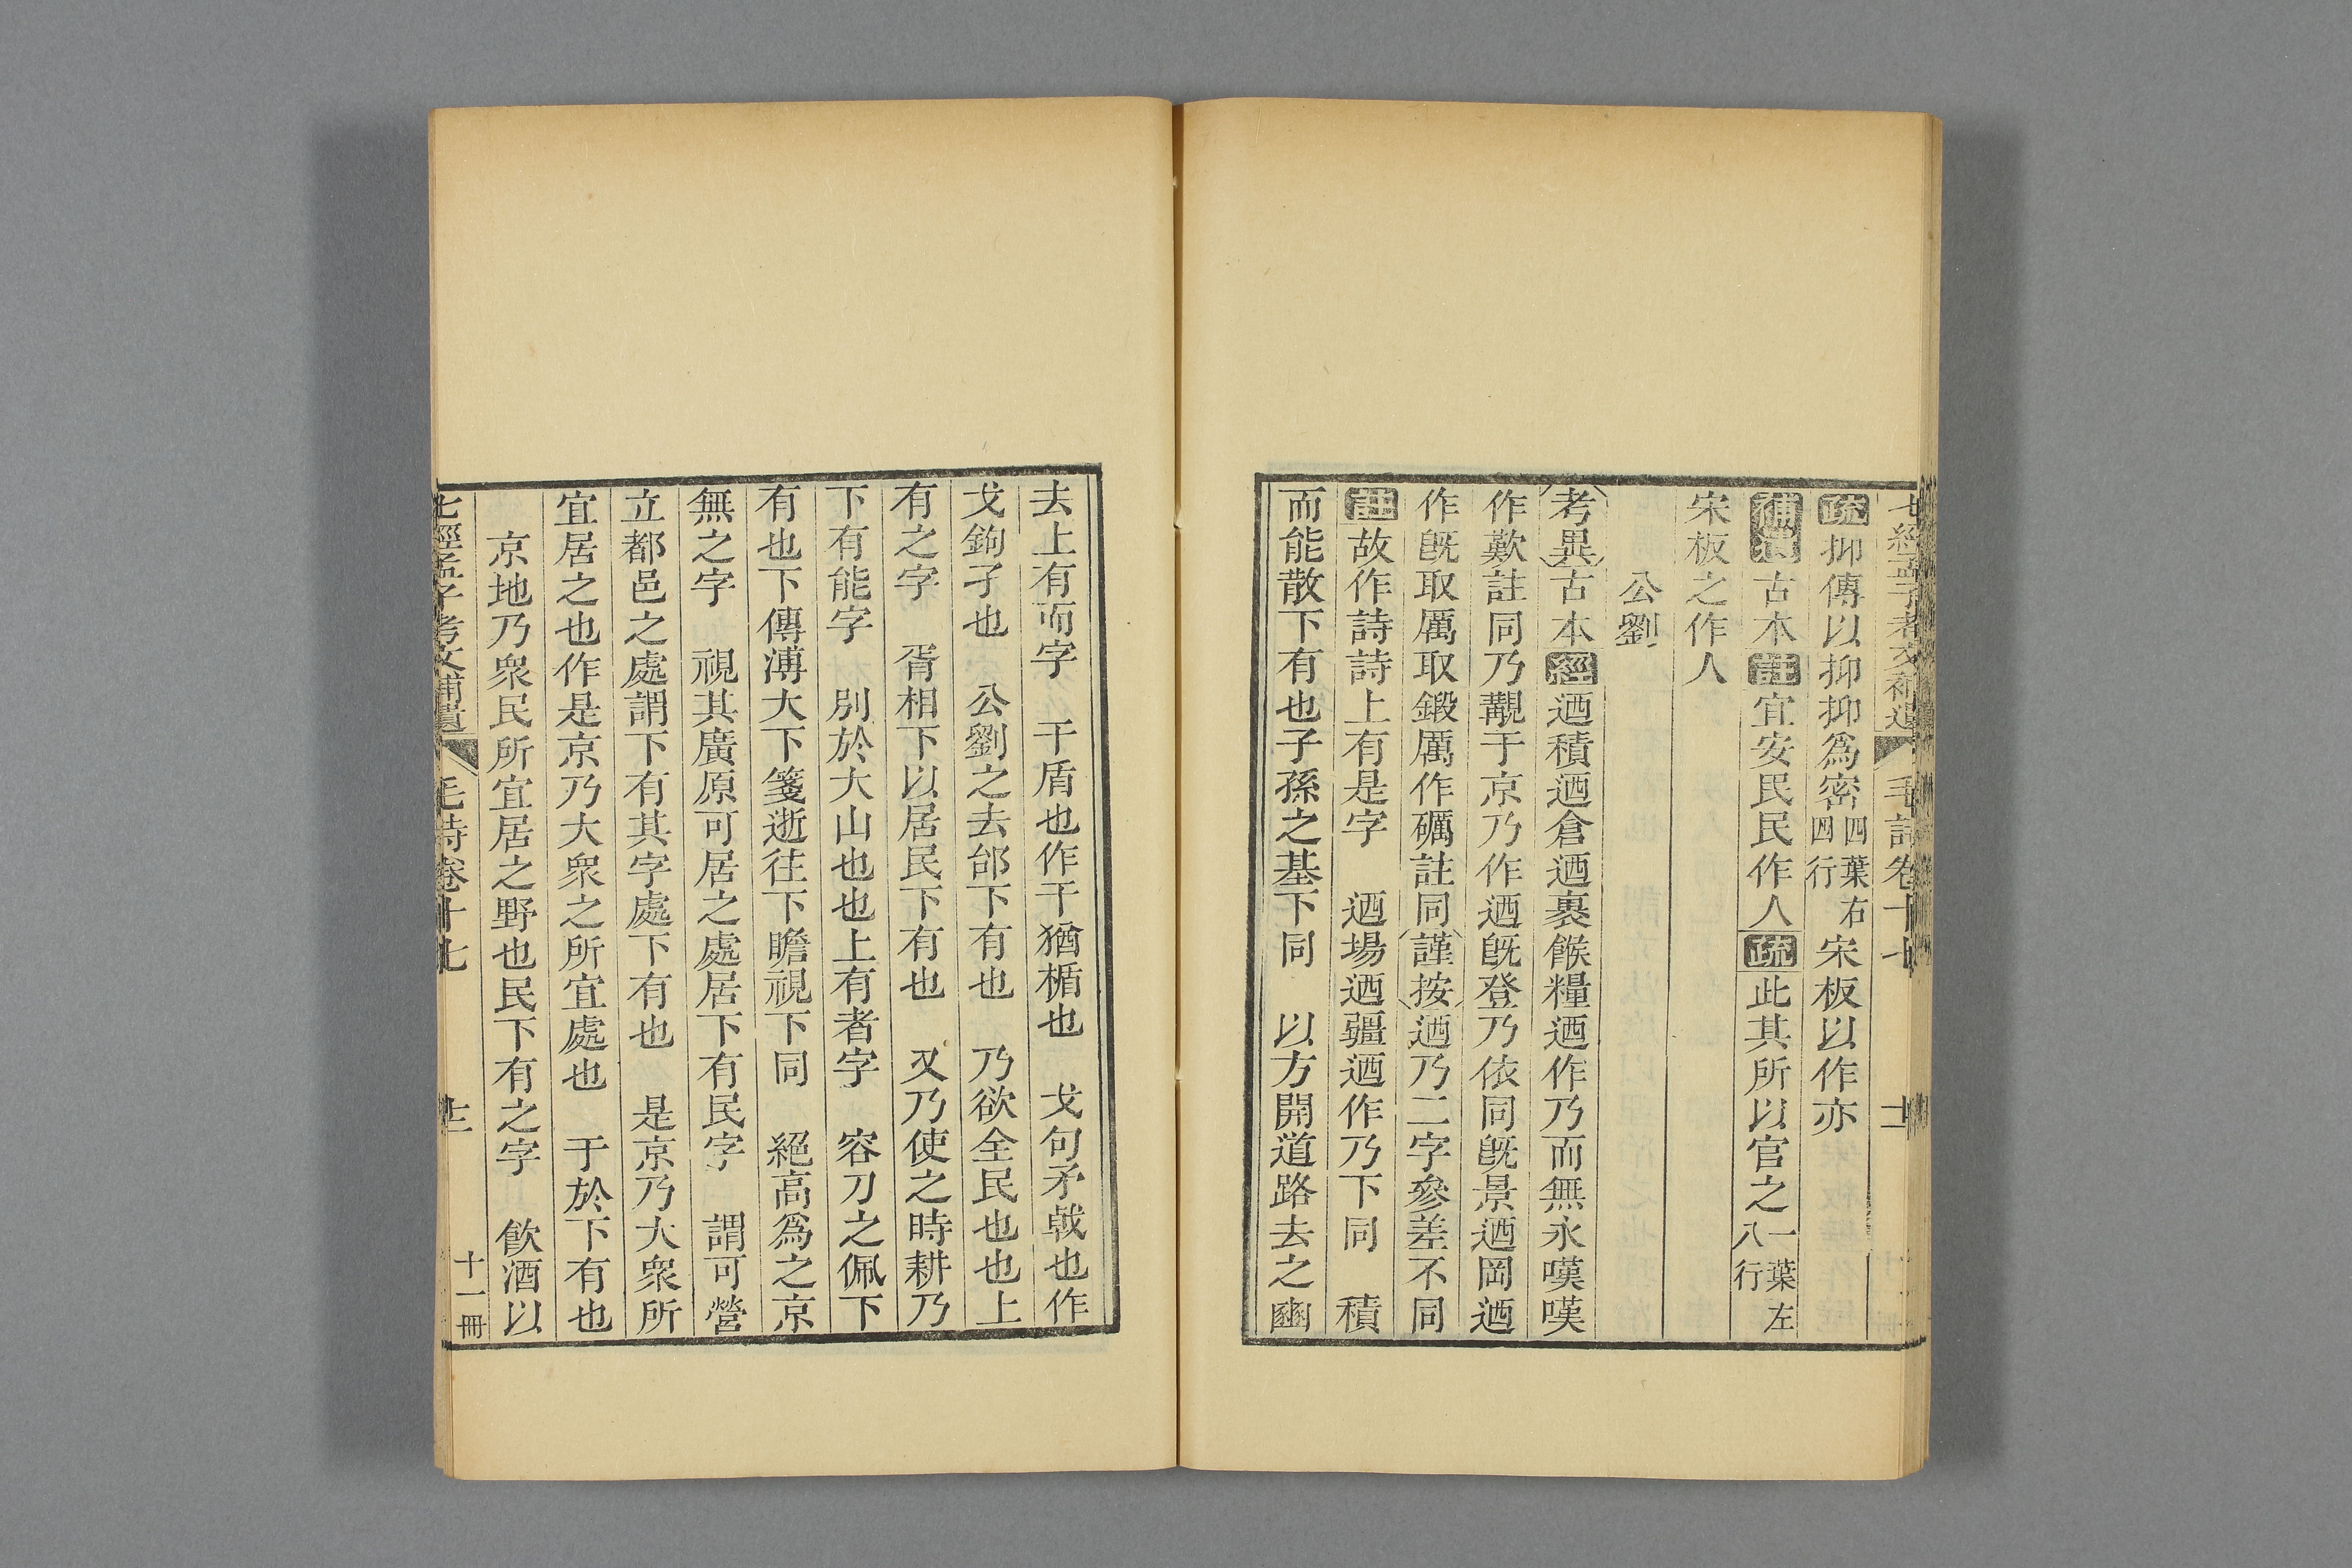 七經孟子考文補遺 毛詩卷十七 十一
疏抑傳以抑抑爲密四葉右四行宋板以作亦
補遺古本註宜安民民作人疏此其所以官之一葉左八行
宋板之作人
公劉
考異古本經迺積迺倉迺裹餱糧迺作乃而無永嘆嘆
作歎註同乃覯于京乃作迺旣登乃依同旣景迺岡迺
作旣取厲取鍛厲作礪註同謹按迺乃二字參差不同
註故作詩詩上有是字 迺場迺疆迺作乃下同 積
而能散下有也子孫之基下同 以方開道路去之豳
去上有而字 干盾也作干猶楯也 戈句矛戟也作
戈鉤孑也 公劉之去邰下有也 乃欲全民也也上
有之字 胥相下以居民下有也 又乃使之時耕乃
下有能字 別於大山也也上有者字 容刀之佩下
有也下傳溥大下箋逝往下瞻視下同 絕高爲之京
無之字 視其廣原可居之處居下有民字 謂可營
立都邑之處謂下有其字處下有也 是京乃大衆所
宜居之也作是京乃大衆之所宜處也 于於下有也
京地乃衆民所宜居之野也民下有之字 飮酒以
七經孟子考文補遺 毛詩卷十七 十二 十一冊